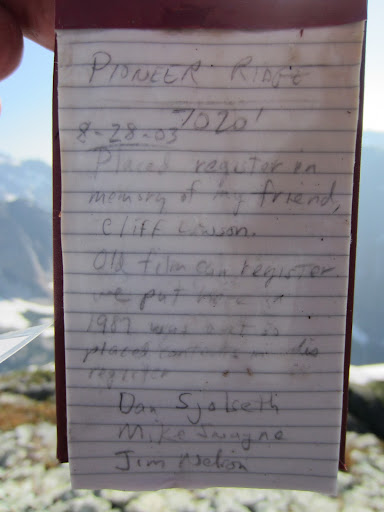 PIONEER RIDGE
7020'
8-28-03
Placed register in
memory of my friend,
Cliff Lawson.
Old film can register
we put here in
1987 was
placed contents in
register
Dan Sjolseth
Mike Swayne
Jim Nelson